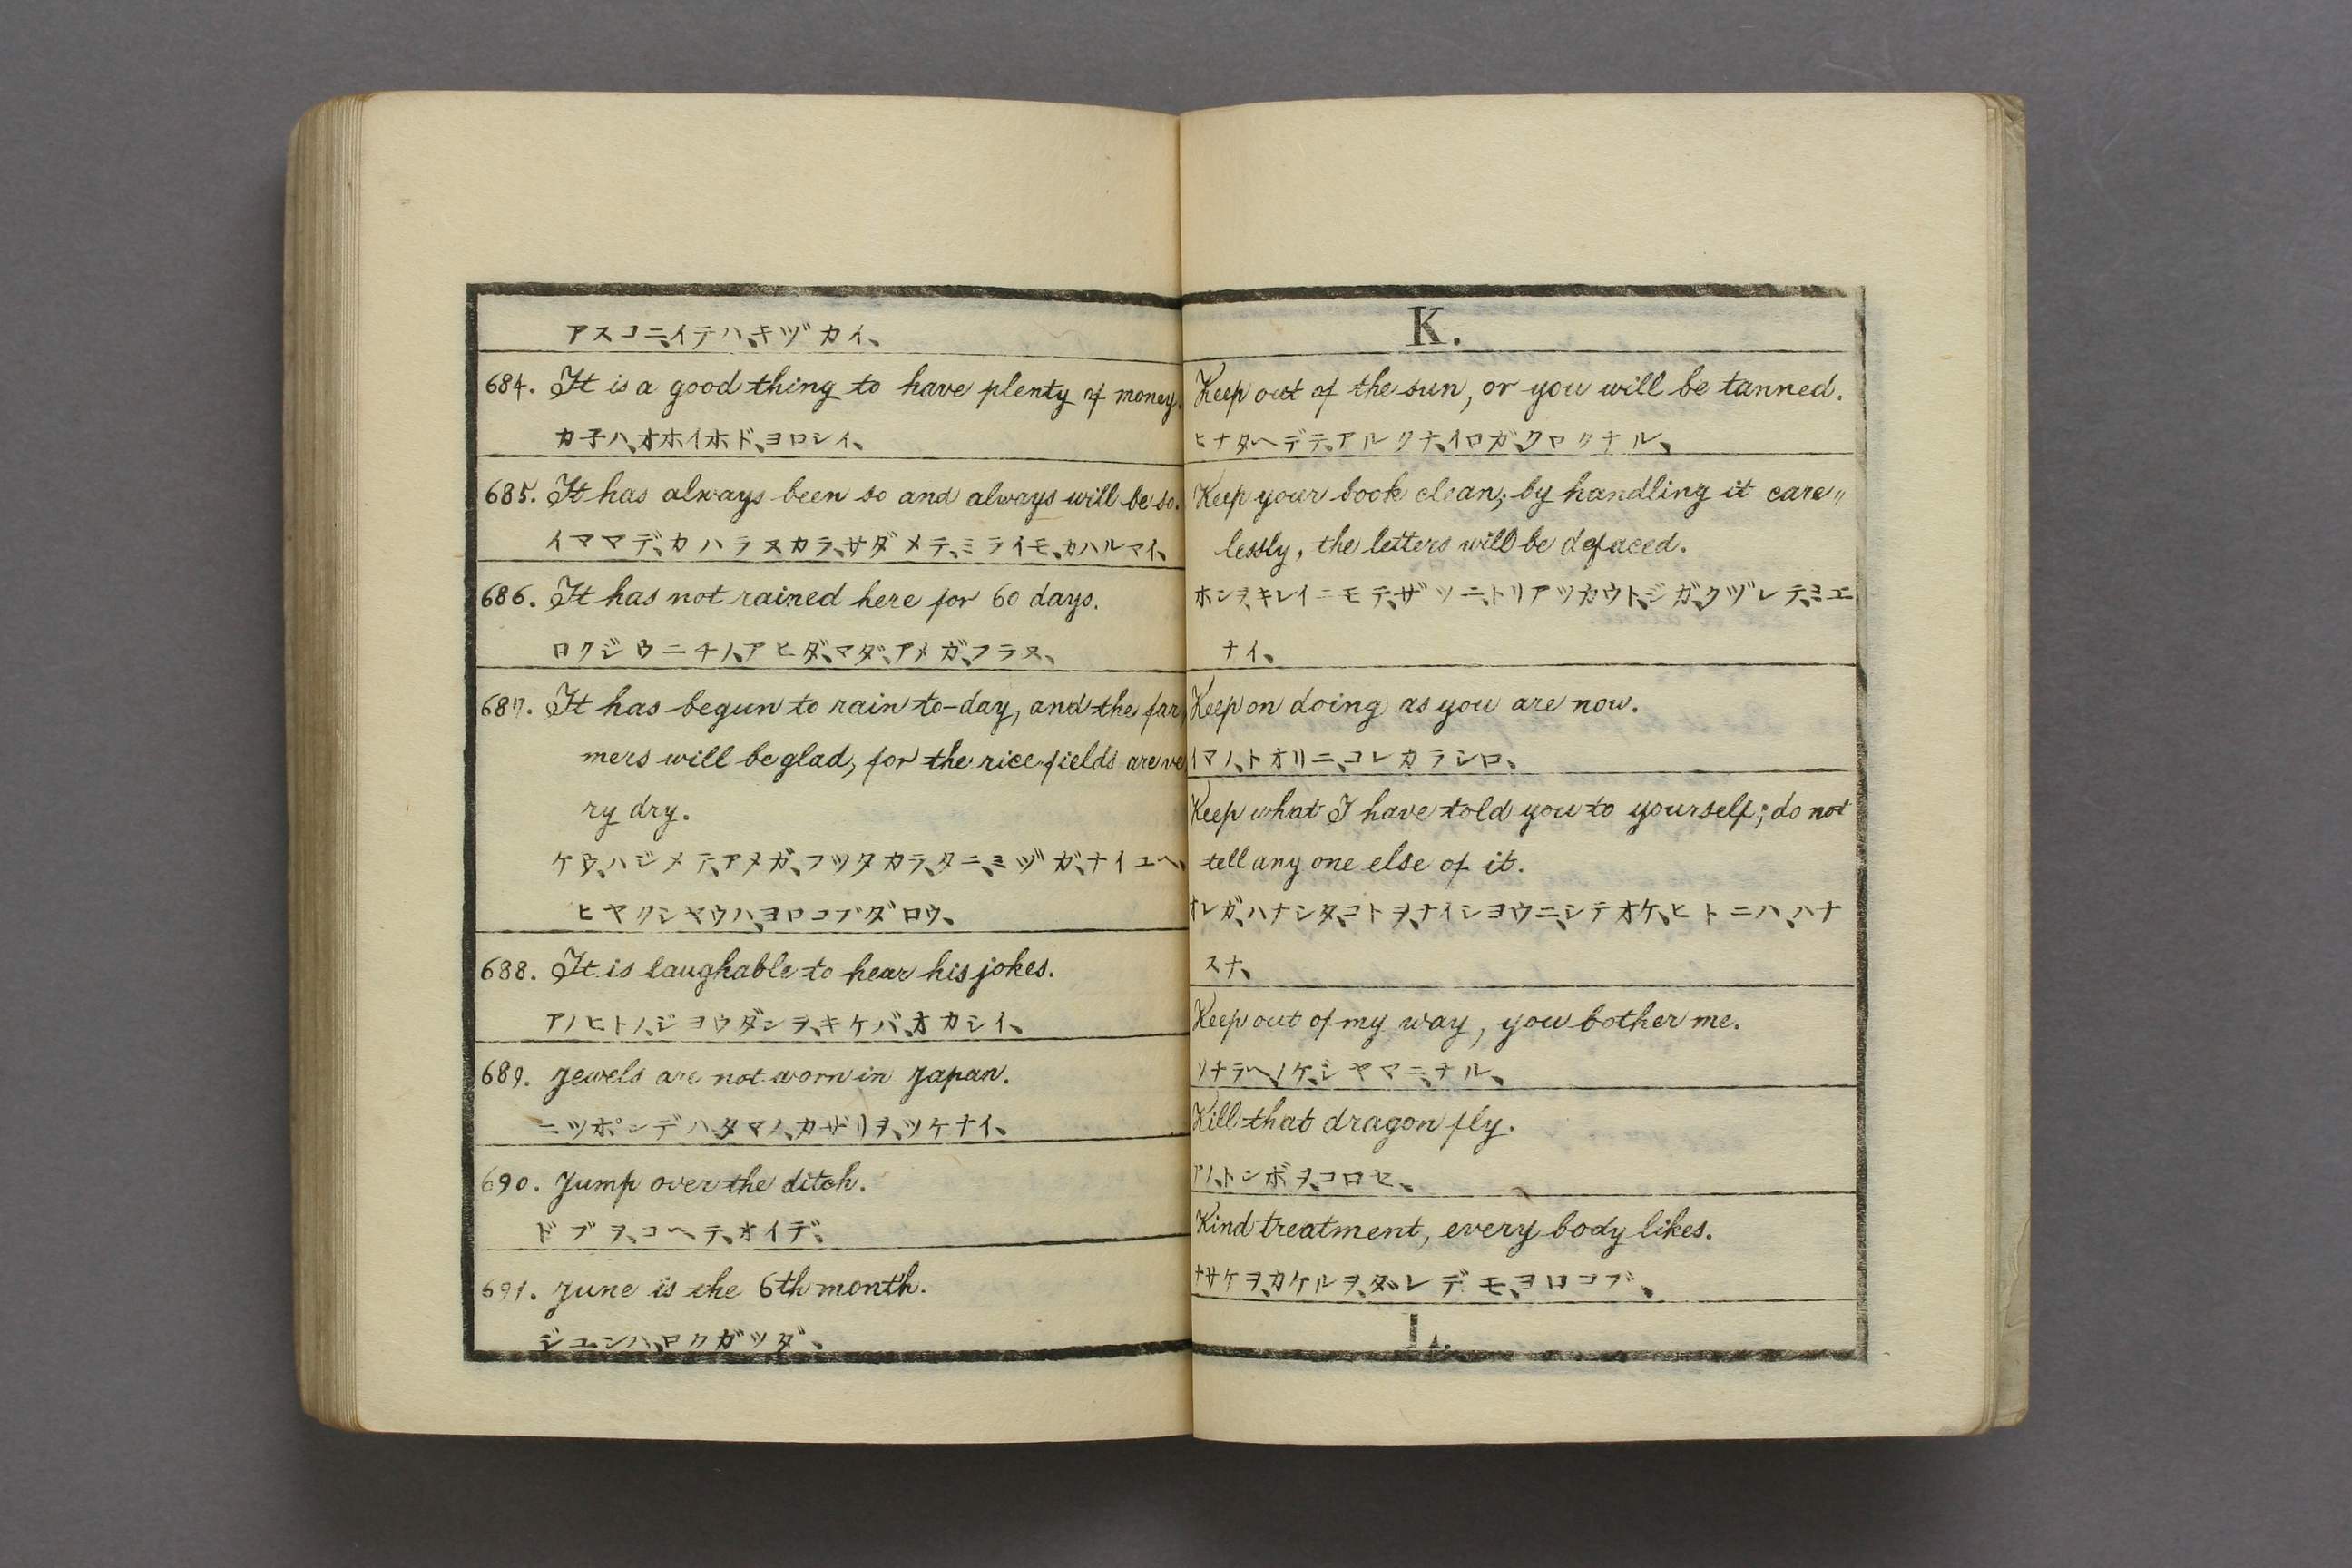 アスコニ、イテハ、キヅカイ、
684. It is a good thing to have plenty of money.
カ子ハ、オホイホド、ヨロシイ、
685. It has always been so and always will be so.
イママデ、カハラヌカラ、サダメテ、ミライモ、カハルマイ、
686. It has not rained here for 60 days.
ロクジウニチノ、アヒダ、マダ、アメガ、フラヌ、
687. It has begun to rain to-day, and the far
mers will be glad, for the rice fields are ve
ry dry.
ケウ、ハジメテ、アメガ、フツタカラ、タニ、ミヅガ、ナイユヘ、
ヒヤクシヤウハ、ヨロコブダロウ、
688. It is laughable to hear his jokes.
アノヒトノ、ジヨウダンヲ、キケバ、オカシイ、
689. Jewels are not worn in Japan.
ニツポンデハ、タマノ、カザリヲ、ツケナイ、
690. Jump over the ditch.
ドブヲ、コヘテ、オイデ、
691. June is the 6th month.
ジユンハ、ロクガツダ、
K.
Keep out of the sun, or you will be tanned.
ヒナタヘデテ、アルクナ、イロガ、クロクナル、
Keep your book clean; by handling it care〃
lessly, the letters will be defaced.
ホンヲ、キレイニモテ、ザツニ、トリアツカウト、ジガ、クヅレテ、ミエ
ナイ、
Keep on doing as you are now.
イマノ、トオリニ、コレカラシロ、
Keep what I have told you to yourself; do not
tell any one else of it.
オレガ、ハナシタ、コトヲ、ナイシヨウニ、シテオケ、ヒトニハ、ハナ
スナ、
Keep out of my way, you bother me.
ソチラヘ、ノケ、ジヤマニ、ナル、
Kill that dragon fly.
アノ、トンボヲ、コロセ、
Kind treatment, every body likes.
ナサケヲ、カケルヲ、ダレデモ、ヨロコブ、
L.